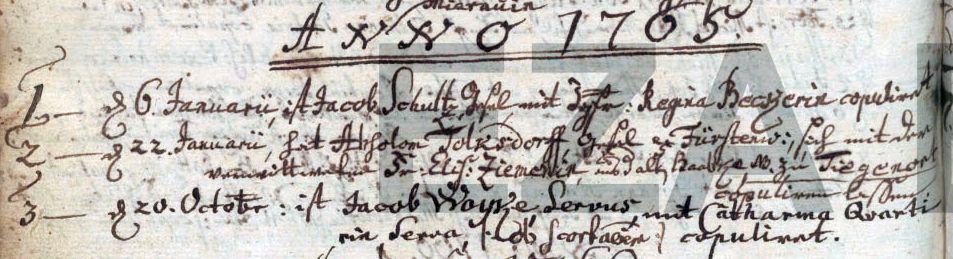 ANNO 1765.
1 — d 6 Januarii, ist Jacob Schultz Gesel mit Jgfr: Regina Beczerin copuliret
2 — d 22. Januarii, hat Absolom Tolksdorff Gesel Fürstenw:, sich mit der
verwittweten Fr: Elis: Ziemerin, zu Tiegenort
copuliren lassen
3 — d 20. Octobr: ist Jacob Woyke Servus, mit Catharina Quarti
rin Serva, copuliret.
EZA